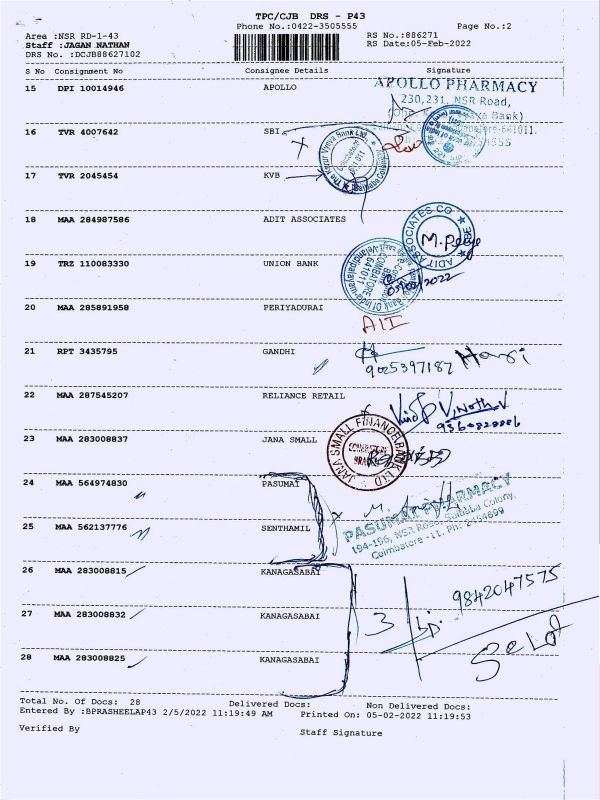 TPC/CJB DRS - P43
Phone No.:0422-3505555 Page No.:2
Area :NSR RD-1-43 RS No.:886271
Staff :JAGAN NATHAN RS Date:05-Feb-2022
DRS No. :DCJB88627102
S No Consignment No Consignee Details Signature
15 DPI 10014946 APOLLO
APOLLO PHARMACY
230,231, NSR Road,
16 TVR 4007642 SBI
17 TVR 2045454 KVB
18 MAA 284987586 ADIT ASSOCIATES
ADIT ASSOCIATES
19 TRZ 110083330 UNION BANK
20 MAA 285891958 PERIYADURAI
21 RPT 3435795 GANDHI
9025397187 Hari
22 MAA 287545207 RELIANCE RETAIL
Vinoth V
9360828886
23 MAA 283008837 JANA SMALL
JANA SMALL FINANCE BANK LTD
24 MAA 564974830 PASUMAI
PASUMAI PHARMACY
194-196, NSR Road, Saibaba Colony,
Coimbatore -11. Ph: 2454699
25 MAA 562137776 SENTHAMIL
26 MAA 283008815 KANAGASABAI
9842047575
27 MAA 283008832 KANAGASABAI
3
28 MAA 283008825 KANAGASABAI
Total No. Of Docs: 28 Delivered Docs: Non Delivered Docs:
Entered By :BPRASHEELAP43 2/5/2022 11:19:49 AM Printed On: 05-02-2022 11:19:53
Verified By Staff Signature